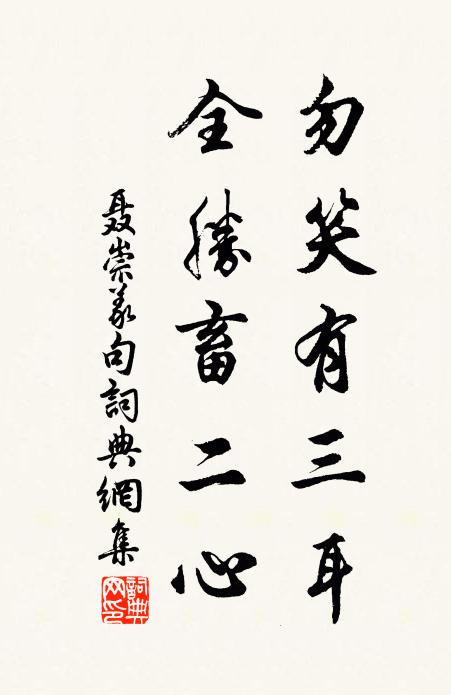 勿笑有三耳
全勝畜二心
聶崇義句詞典網集
詞典网印